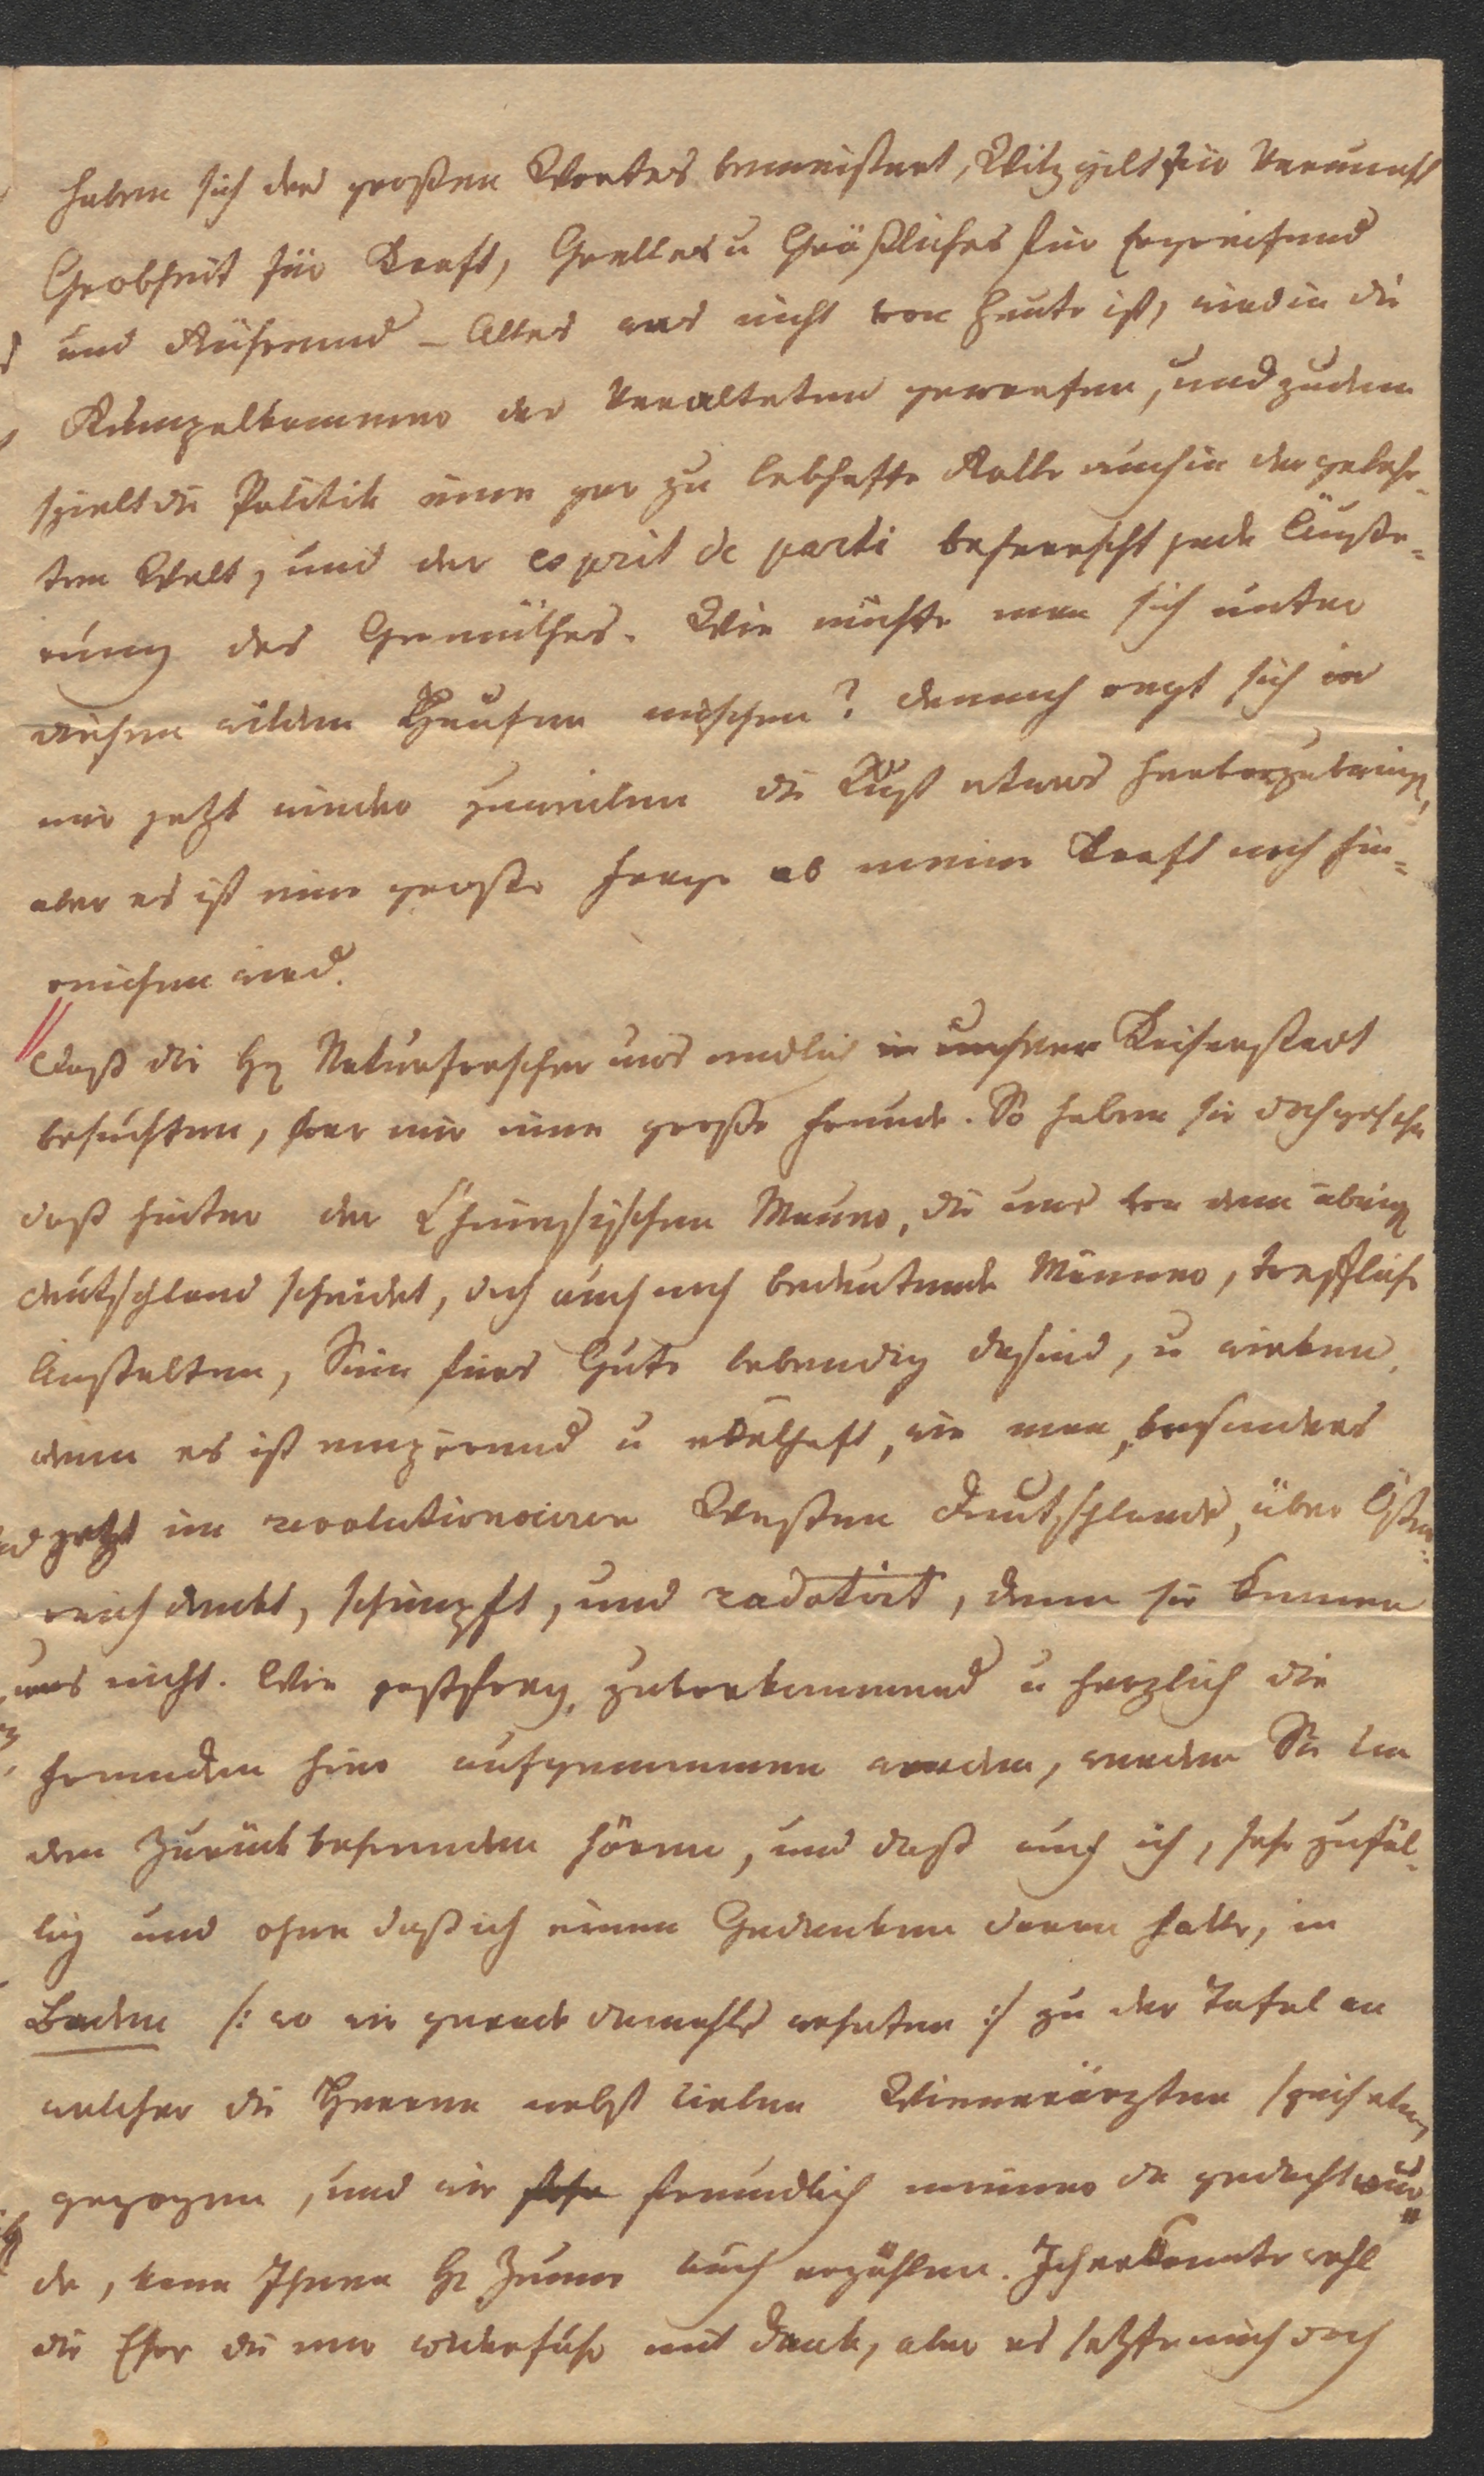 haben sich des großen Wortes bemeistert, Witz gilt für Vernunft
Grobheit für Kraft, Grelles u Gräßliches für Ergreifend
und Rührend – Alles was nicht von heute ist, wird in die
Rumpelkammer des Veralteten geworfen, und zudem
spielt die Politik eine gar zu lebhafte Rolle auch in der gelehr-
ten Welt, und der esprit de parti beherrscht jede Äuße-
rung des Gemüthes. Wie möchte man sich unter
diesen wilden Haufen mischen? Dennoch regt sich in
mir jetzt wieder zuweilen die Lust etwas hervorzubringen,
aber es ist eine große Frage ob meine Kraft noch hin-
reichen wird.
Daß die HH Naturforscher uns endlich in unserer Kaiserstadt
besuchten, war mir eine große Freude. So haben sie doch gesehen
daß hinter der Chinesischen Mauer, die uns von dem übrigen
Deutschland scheidet, doch auch noch bedeutende Männer, treffliche
Anstalten, Sinn fürs Gute lebendig da sind, u wirken,
denn es ist empörend u ekelhaft, wie man, besonders
jetzt im revolutionairen Westen Deutschlands, über Öster-
reich denkt, schimpft, und radotirt, denn sie kennen
uns nicht. Wie gastfrey, zuvorkommend u herzlich die
Fremden hier aufgenommen werden, werden Sie von
den Zurückkehrenden hören, und daß auch ich, sehr zufäl-
lig und ohne daß ich einen Gedanken daran hatte, in
Baden /: wo wir gerade damahls wohnten :/ zu der Tafel an
welcher die Herren nebst vielen Wienerärzten speiseten,
gezogen, und wie sehr freundlich meiner da gedacht wur-
de, kann Ihnen H auch erzählen. Ich erkannte wohl
die Ehre die mir widerfuhr mit Dank, aber es setzte mich doch